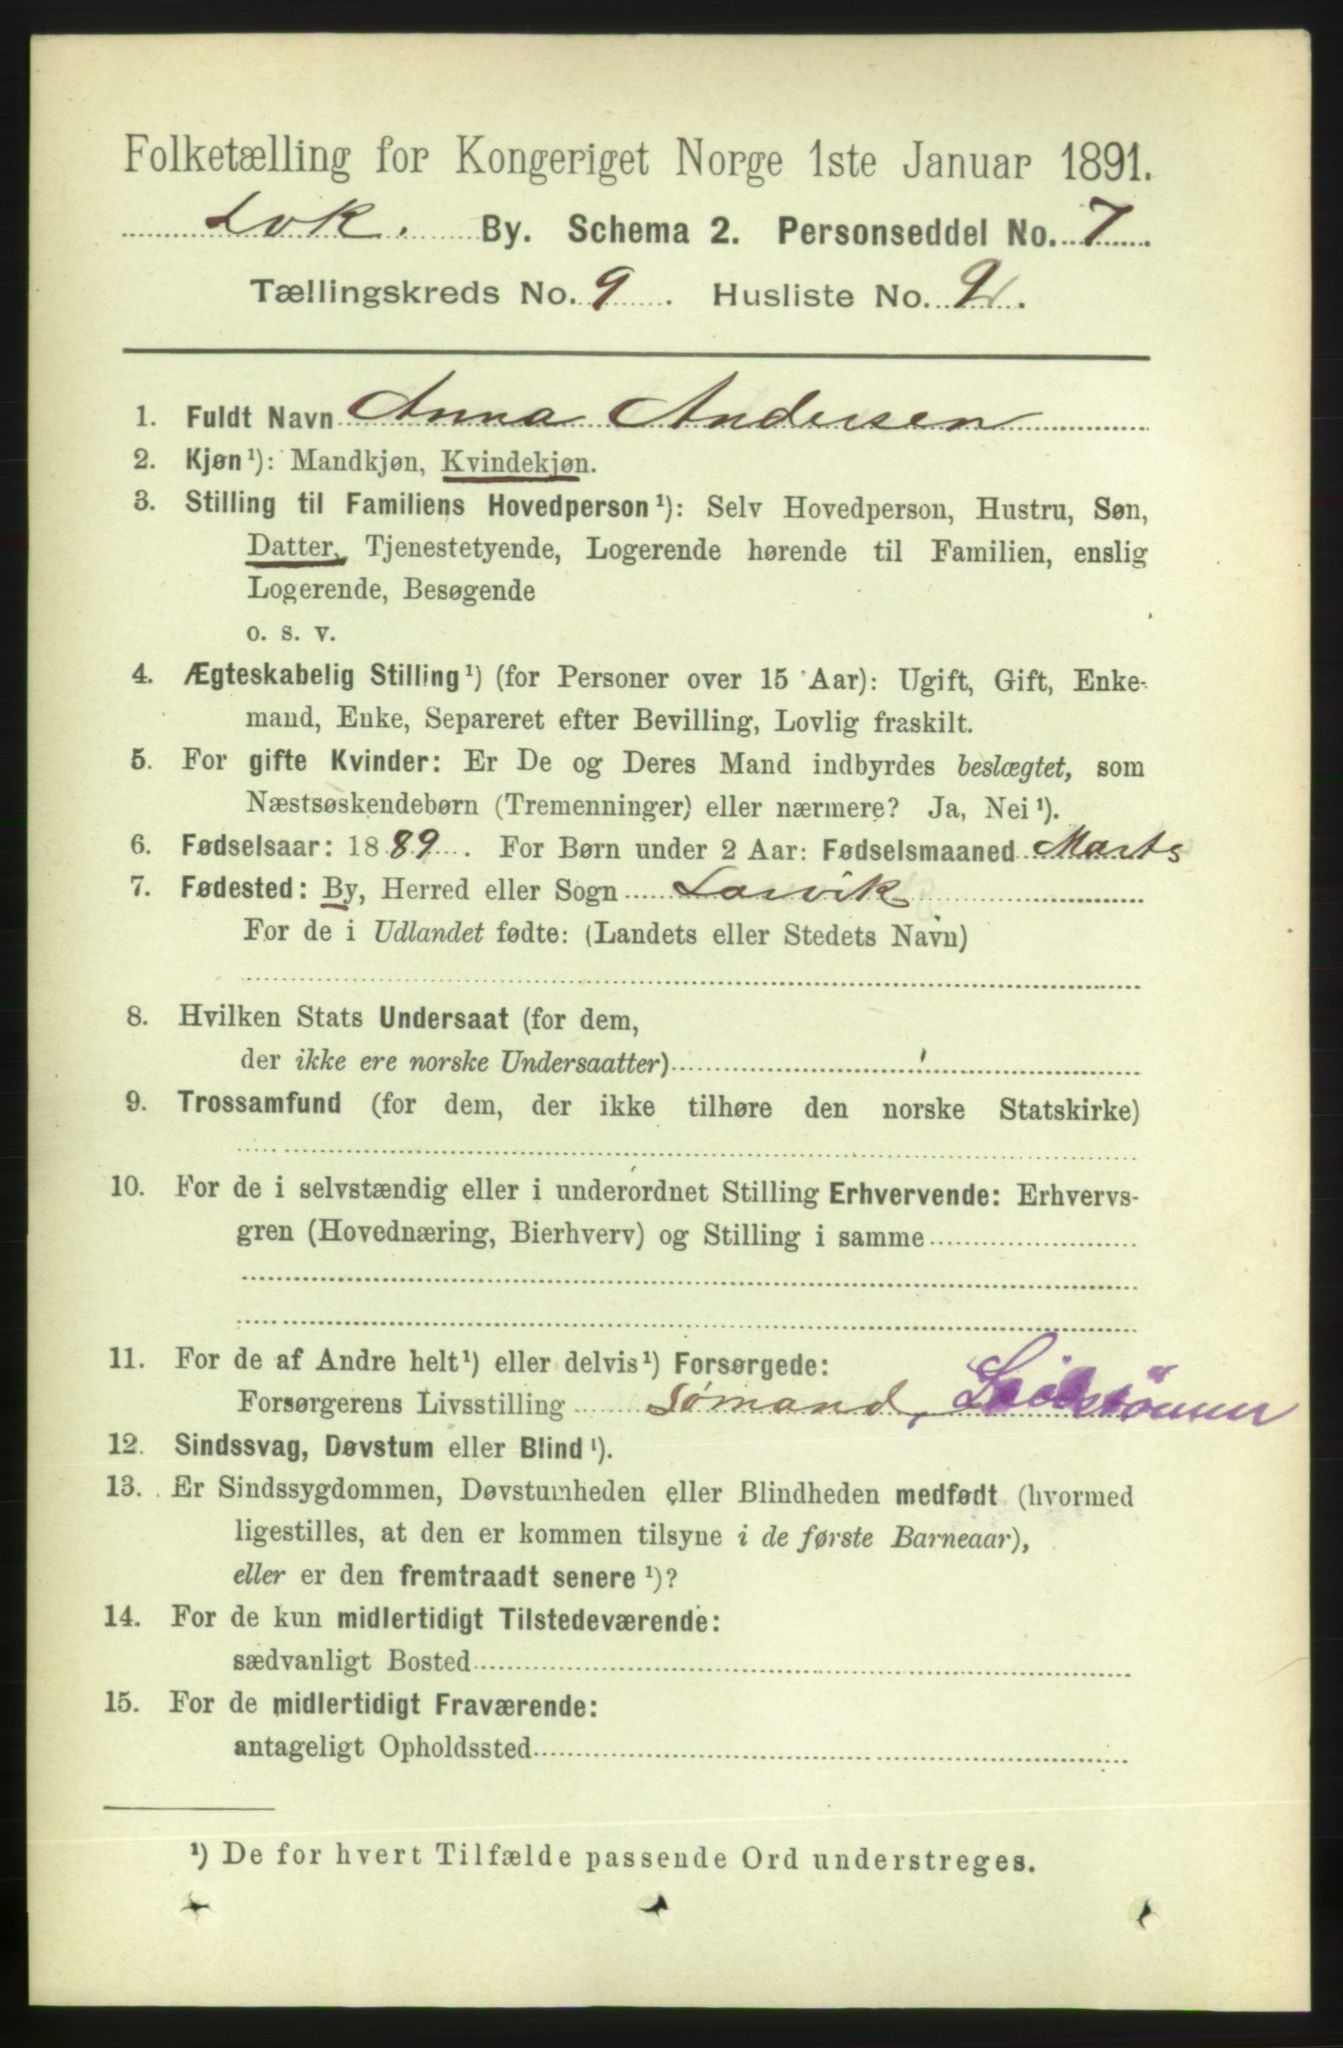 Folketælling for Kongeriget Norge 1ste Januar 1891.
Lvk. By. Schema 2. Personseddel No. 7
Tællingskreds No. 9. Husliste No. 9.
1. Fuldt Navn Anna Andersen
2. Kjøn¹): Mandkjøn, Kvindekjøn.
3. Stilling til Familiens Hovedperson¹): Selv Hovedperson, Hustru, Søn,
Datter, Tjenestetyende, Logerende hørende til Familien, enslig
Logerende, Besøgende
o. s. v.
4. Ægteskabelig Stilling¹) (for Personer over 15 Aar): Ugift, Gift, Enke-
mand, Enke, Separeret efter Bevilling, Lovlig fraskilt.
5. For gifte Kvinder: Er De og Deres Mand indbyrdes beslægtet, som
Næstsøskendebørn (Tremenninger) eller nærmere? Ja, Nei¹).
6. Fødselsaar: 1889. For Børn under 2 Aar: Fødselsmaaned Marts
7. Fødested: By, Herred eller Sogn Larvik
For de i Udlandet fødte: (Landets eller Stedets Navn)
8. Hvilken Stats Undersaat (for dem,
der ikke ere norske Undersaatter)
9. Trossamfund (for dem, der ikke tilhøre den norske Statskirke)
10. For de i selvstændig eller i underordnet Stilling Erhvervende: Erhvervs-
gren (Hovednæring, Bierhverv) og Stilling i samme
11. For de af Andre helt¹) eller delvis¹) Forsørgede:
Forsørgerens Livsstilling Sømand,
12. Sindssvag, Døvstum eller Blind¹).
13. Er Sindssygdommen, Døvstumheden eller Blindheden medfødt (hvormed
ligestilles, at den er kommen tilsyne i de første Barneaar),
eller er den fremtraadt senere¹)?
14. For de kun midlertidigt Tilstedeværende:
sædvanligt Bosted
15. For de midlertidigt Fraværende:
antageligt Opholdssted
¹) De for hvert Tilfælde passende Ord understreges.